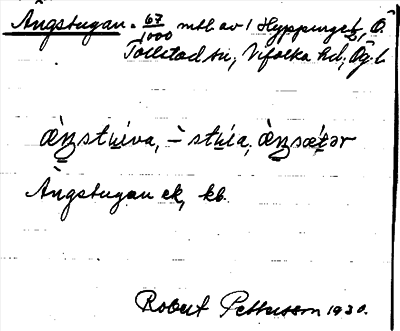 Ängstugan = 67/1000 mtl av 1 Hyppinge, Ö.
Tollstad sn, Vifolka hd, Ög. l.
æ̀ŋstɯ́va, -̀ stɯ́a, æ̀ŋsæ̀tər
Ängstugan ek, kb.
Robert Pettersson 1930.